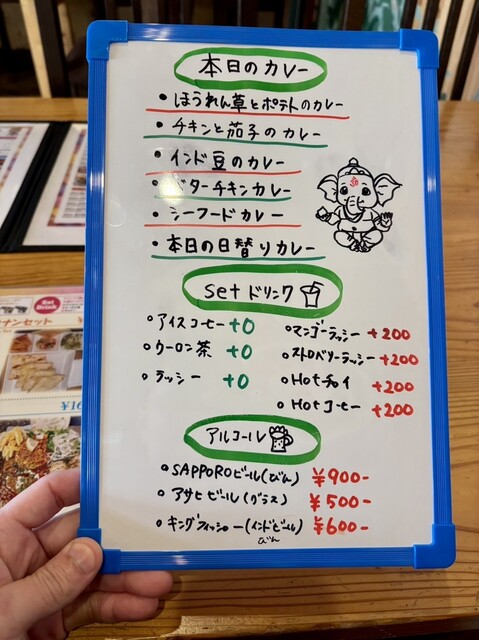 本日のカレー
・ほうれん草とポテトのカレー
・チキンと茄子のカレー
・インド豆のカレー
・バターチキンカレー
・シーフードカレー
・本日の日替りカレー
setドリンク
○アイスコーヒー +0
○ウーロン茶 +0
○ラッシー +0
○マンゴーラッシー +200
○ストロベリーラッシー +200
○Hotチャイ +200
○Hotコーヒー +200
アルコール
○SAPPOROビール(びん) ¥900-
○アサヒビール(グラス) ¥500-
○キングフィッシャー(インドビール) ¥600-
びん
Eat
Drink
ナンセット